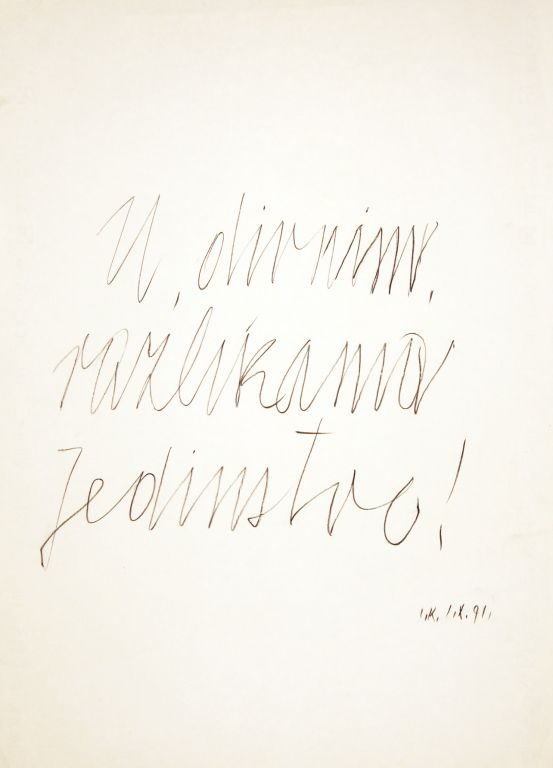 U, dirnim,
razlikama
Jedinstvo!
I.K. I.X.91.